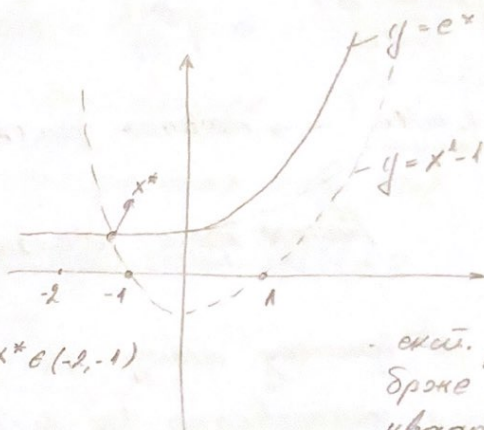 y = eˣ
y = x² - 1
x*
-2 -1 1
x* ∈ (-2, -1)
- екст.
брже